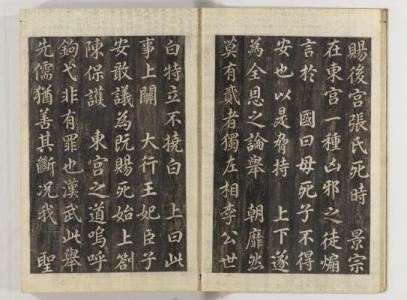 賜後宮張氏死時 景宗
在東宮一種凶邪之徒煽
言於國曰母死子不得
安也以是脅持 上下遂
為全恩之論擧 朝靡然
莫有貳者獨左相李公世
白特立不撓白 上曰此
事上關 大行王妃臣子
安敢議為旣賜死始上劄
陳保護 東宮之道嗚呼
鉤弋非有罪也漢武此擧
先儒猶善其斷况我 聖